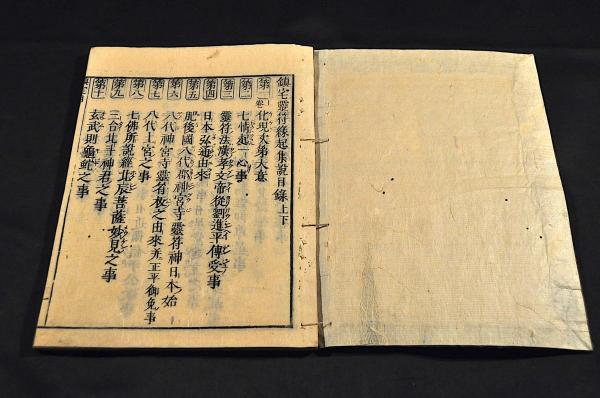 鎮宅霊符縁起集説目録上下
第一 卷 化現次第大意
第二 七情起一心事
第三 霊符法漢孝文帝從劉進平傳受事
第四 日本弘通由来
第五 肥後國八代郡神宮寺霊符神日本始
第六 八代神宮寺霊符板之由来并正平御免事
第七 八代上宮之事
第八 七佛所說經北辰菩薩妙見之事
第九 三台北斗神君之事
第十 玄武則龜蛇之事